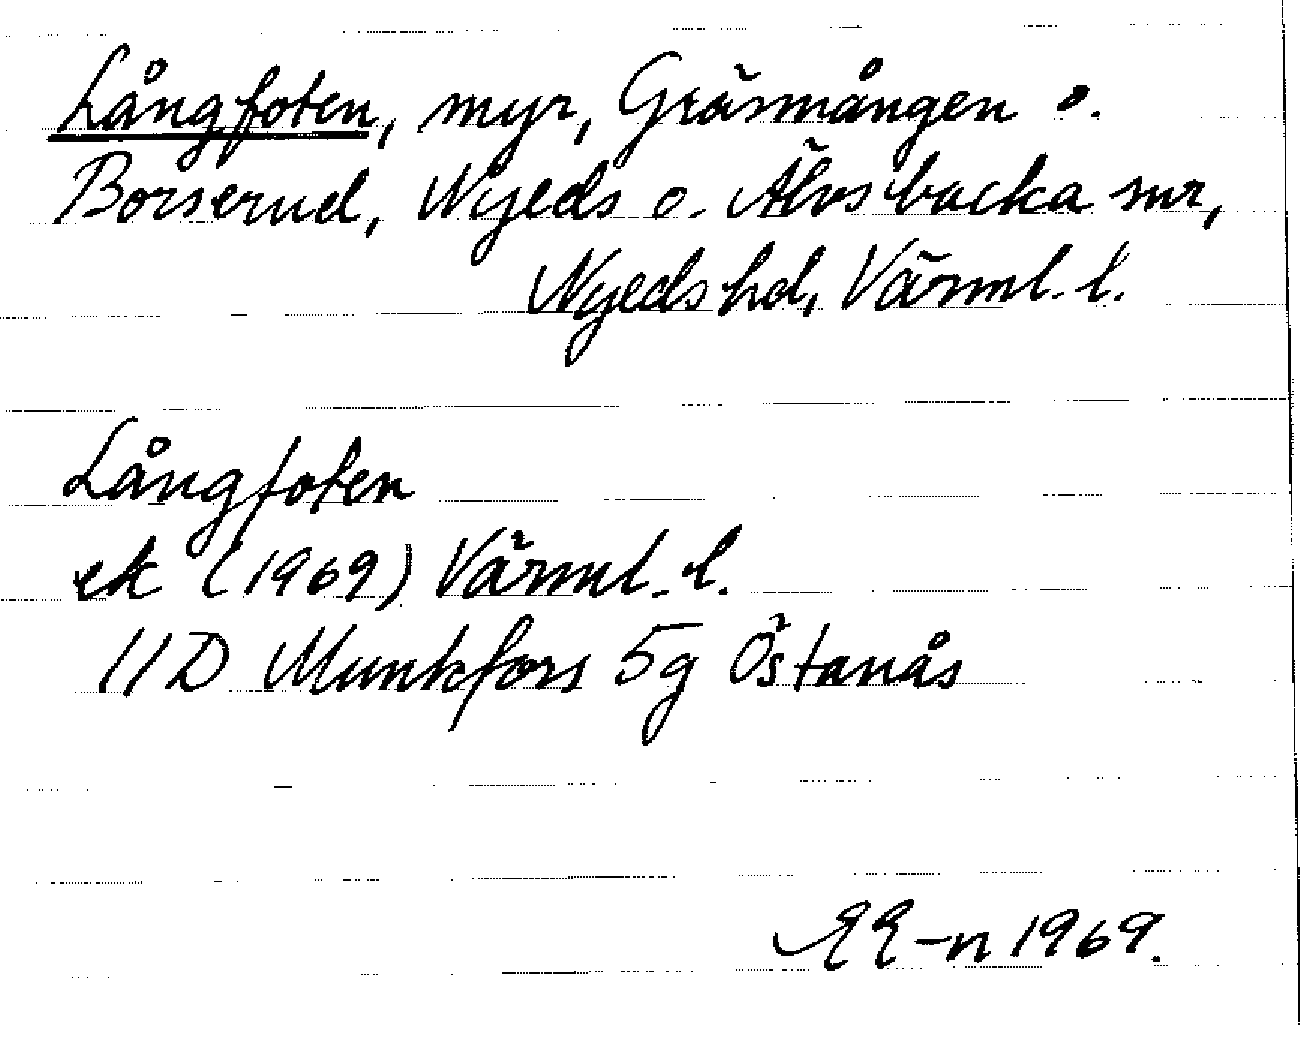 Långfoten, myr, Gräsmången o.
Borserud, Nyeds o. Älvsbacka snr,
Nyeds hd, Värml. l.
Långfoten
ek (1969) Värml. l.
11D Munkfors 5g Östanås
EE-n 1969.